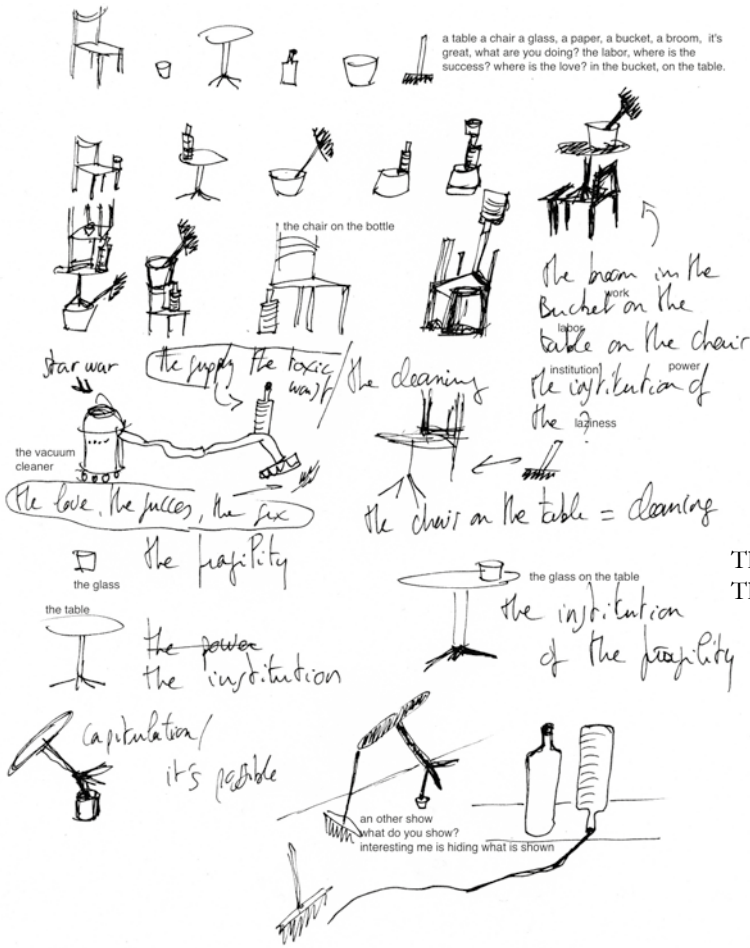 a table a chair a glass, a paper, a bucket, a broom, it's
great, what are you doing? the labor, where is the
success? where is the love? in the bucket, on the table.
the chair on the bottle
the broom in the
work
Bucket on the
labor
table on the chair
institution power
the institution of
the ?
laziness
star war
the supply the toxic
wast
the cleaning
the vacuum
cleaner
the love, the succes, the sex
the chair on the table = cleaning
the fragility
the glass
the glass on the table
the institution
of the fragility
the table
the power
the institution
capitulation/
it's possible
an other show
what do you show?
interesting me is hiding what is shown